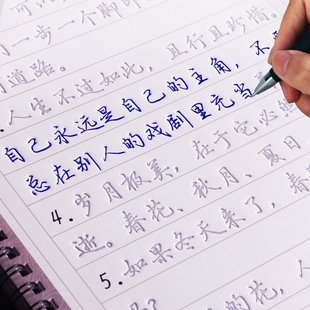 一步一个脚印
道路。
人生不过如此，且行且珍惜。
自己永远是自己的主角，不
总在别人的戏剧里充当
4.岁月极美，在于它必
逝。春花、秋月、夏日
5.如果冬天来了，春
的花，人